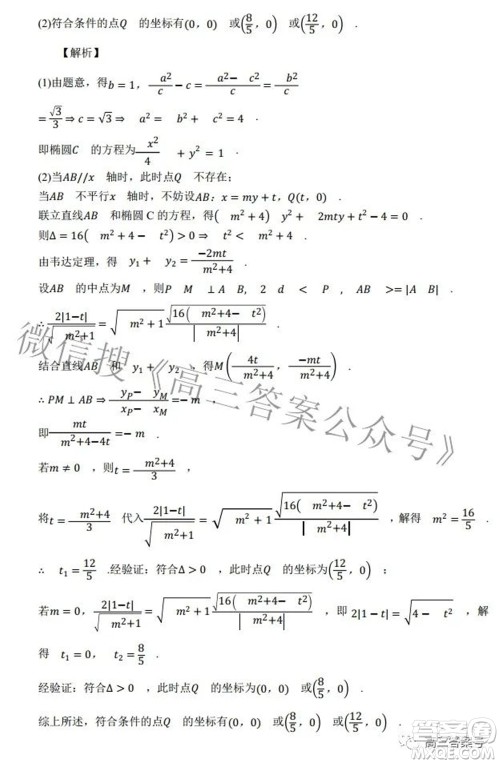 (2)符合条件的点Q 的坐标有(0, 0) 或(8/5, 0) 或(12/5, 0) .
【解析】
(1)由题意，得b = 1, a²/c − c = (a² − c²)/c = b²/c
= √3/3 ⇒ c = √3 ⇒ a² = b² + c² = 4 .
即椭圆C 的方程为 x²/4 + y² = 1 .
(2)当AB//x 轴时，此时点Q 不存在；
当AB 不平行x 轴时，不妨设AB：x = my + t, Q(t, 0) .
联立直线AB 和椭圆 C 的方程，得( m² + 4) y² + 2mty + t² − 4 = 0 .
则Δ = 16( m² + 4 − t²) > 0 ⇒ t² < m² + 4 .
由韦达定理，得 y₁ + y₂ = −2mt/(m²+4) .
设AB 的中点为M ，则P M ⊥ A B, 2 d < P , AB >=| A B| .
∴ 2|1−t|/√(m²+1) = √(m² + 1) √(16( m²+4− t²))/| m²+4| .
结合直线AB 和 y₁ + y₂ ，得M( 4t/(m²+4), −mt/(m²+4)) .
∴ PM ⊥ AB ⇒ (y_P− y_M)/(x_P− x_M) = − m .
即 mt/(m²+4−4t) = − m .
若m ≠ 0 ，则t = (m²+4)/3 .
将t = (m²+4)/3 代入 2|1−t|/√(m²+1) = √(m² + 1) √(16( m²+4− t²))/| m²+4| ，解得 m² = 16/5 .
∴ t₁ = 12/5 .经验证：符合Δ > 0 ，此时点Q 的坐标为(12/5, 0) ；
若m = 0, 2|1−t|/√(m²+1) = √(m² + 1) √(16( m²+4− t²))/| m²+4| ，即 2|1 − t| = √(4 − t²) ，解
得 t₁ = 0, t₂ = 8/5 .
经验证：符合Δ > 0 ，此时点Q 的坐标为(0, 0) 或(8/5, 0) .
综上所述，符合条件的点Q 的坐标有(0, 0) 或(8/5, 0) 或(12/5, 0) .
微信搜《高三答案公众号》
高三答案号